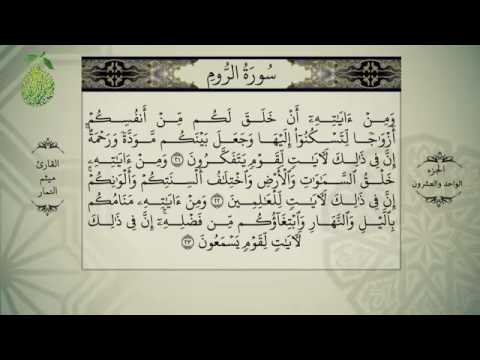 سُورَةُ الرُّومِ
وَمِنْ ءَايَٰتِهِۦٓ أَنْ خَلَقَ لَكُم مِّنْ أَنفُسِكُمْ
أَزْوَٰجًا لِّتَسْكُنُوٓا۟ إِلَيْهَا وَجَعَلَ بَيْنَكُم مَّوَدَّةً وَرَحْمَةً ۚ
إِنَّ فِى ذَٰلِكَ لَـَٔايَٰتٍ لِّقَوْمٍ يَتَفَكَّرُونَ ٢١ وَمِنْ ءَايَٰتِهِۦ
خَلْقُ ٱلسَّمَٰوَٰتِ وَٱلْأَرْضِ وَٱخْتِلَٰفُ أَلْسِنَتِكُمْ وَأَلْوَٰنِكُمْ ۚ
إِنَّ فِى ذَٰلِكَ لَـَٔايَٰتٍ لِّلْعَٰلِمِينَ ٢٢ وَمِنْ ءَايَٰتِهِۦ مَنَامُكُم
بِٱلَّيْلِ وَٱلنَّهَارِ وَٱبْتِغَآؤُكُم مِّن فَضْلِهِۦٓ ۚ إِنَّ فِى ذَٰلِكَ
لَـَٔايَٰتٍ لِّقَوْمٍ يَسْمَعُونَ ٢٣
الجزء
الواحد والعشرون
القارئ
ميثم
التمار